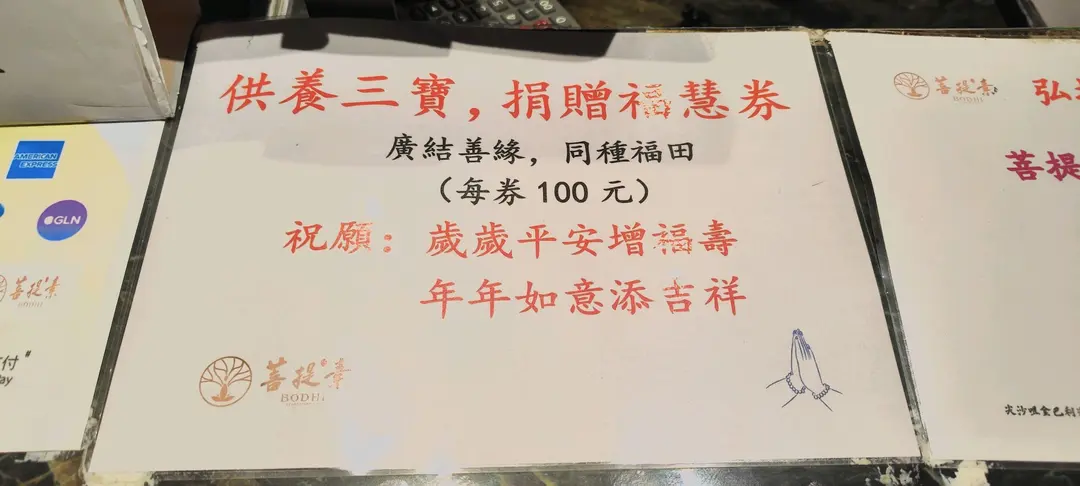 供養三寶，捐贈福慧券
廣結善緣，同種福田
（每券 100 元）
祝願：歲歲平安增福壽
年年如意添吉祥
菩提素
BODHI
AMERICAN
EXPRESS
GLN
菩提素
付"
ay
菩提素
BODHI
弘
菩提
尖沙咀金巴利